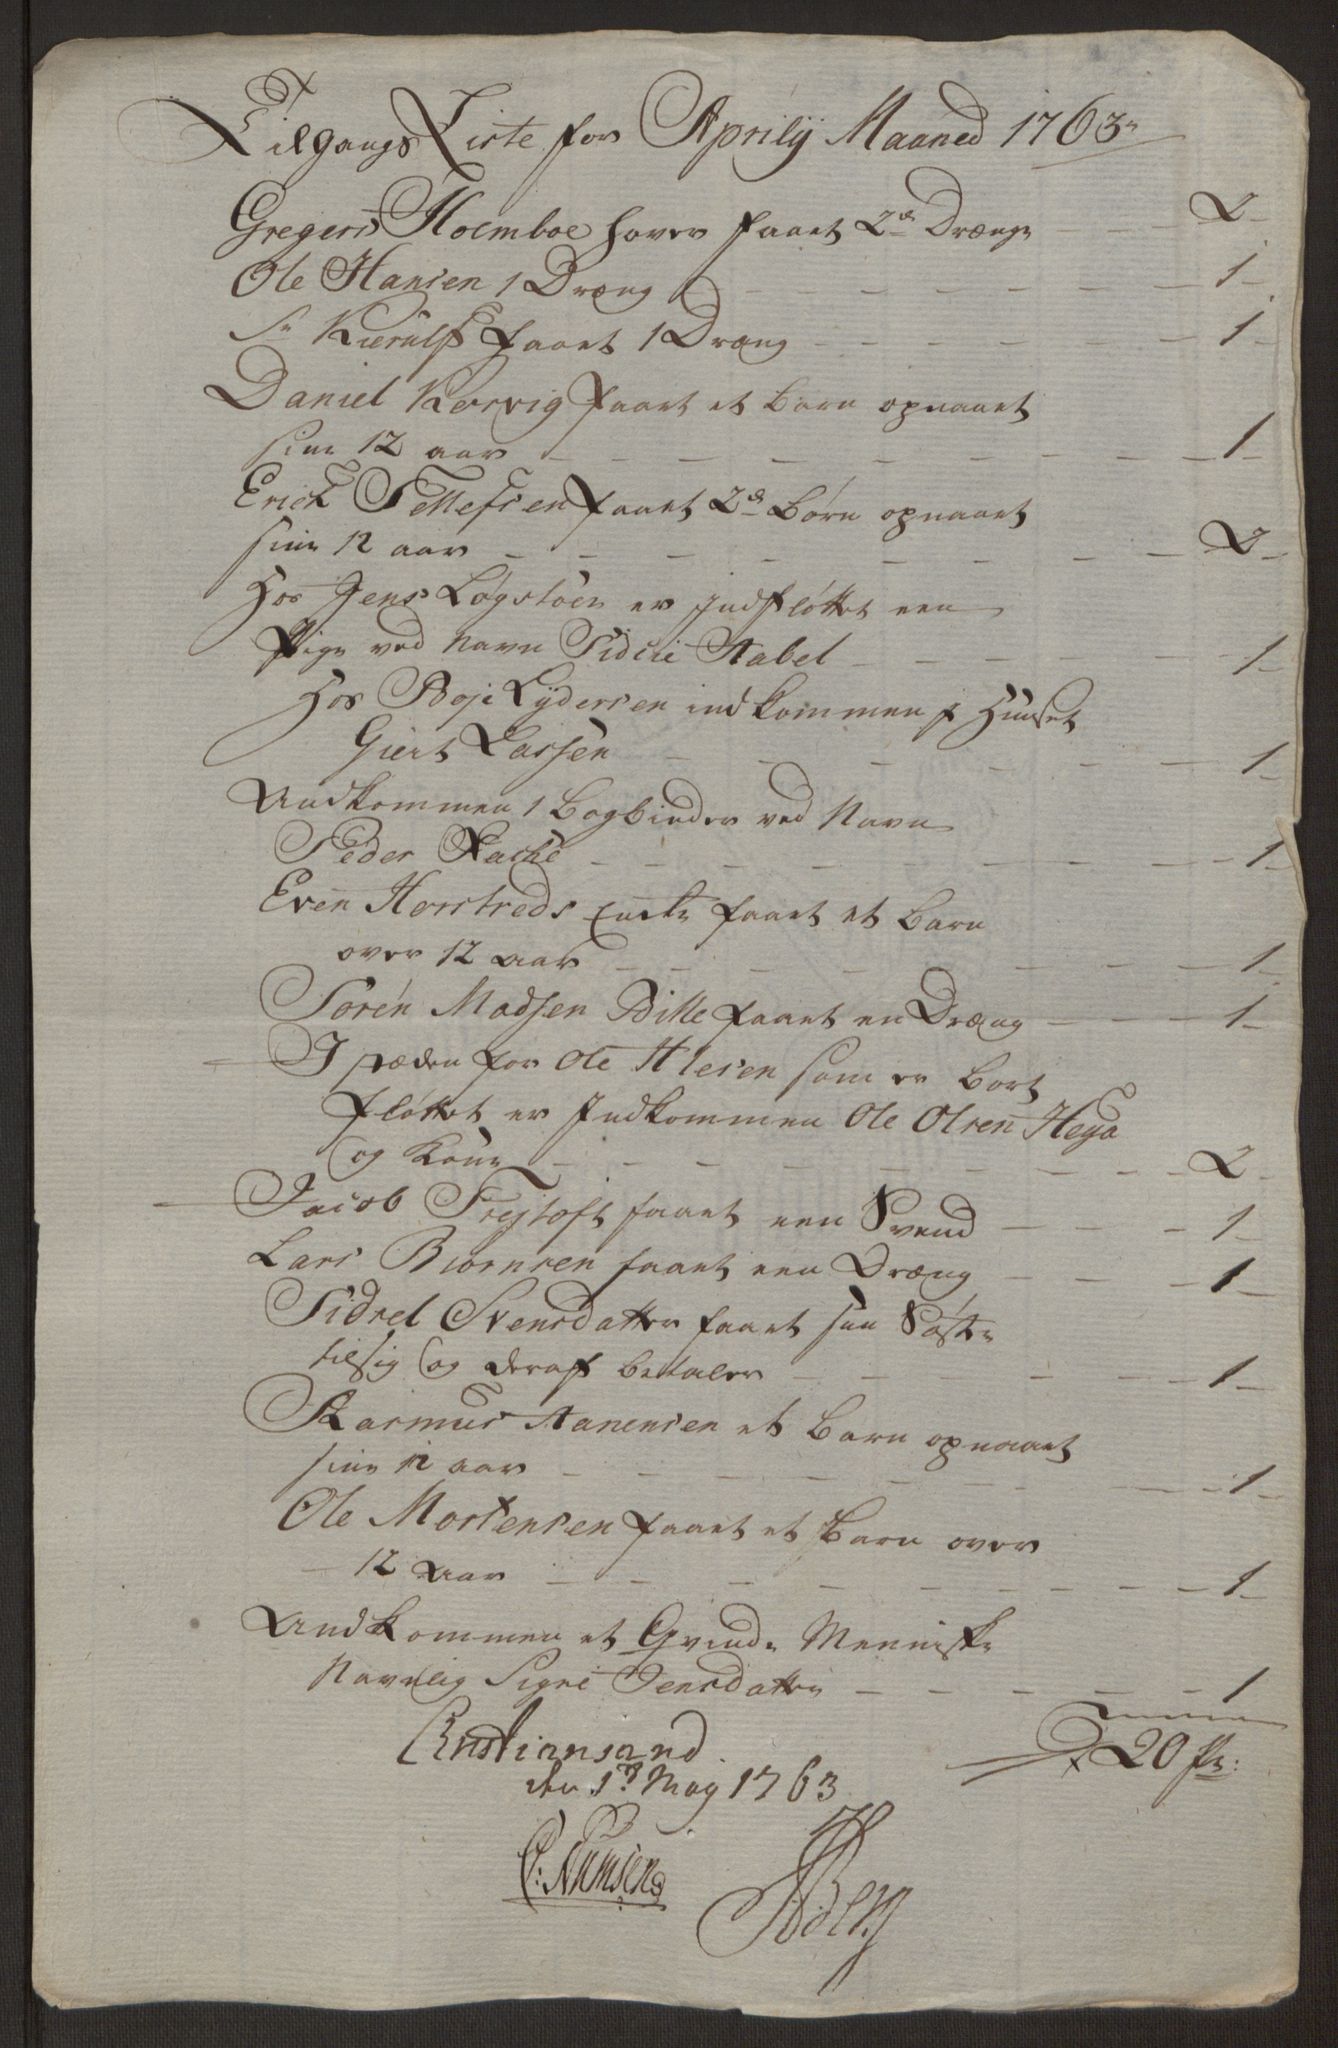 Tilgangs Liste for Aprilij Maaned 1763
Gregers Holmboe haver faaet 2de Drænge - - - 2 -
Ole Hansen 1 Dræng - - - - - - 1 -
Sr Kierulf faaet 1 Dræng - - - - - - 1 -
Daniel Kervig faaet et barn opnaaet
sine 12 aar - - - - - - - 1 -
Erich Tellefsen faaet 2de børn opnaaet
sine 12 aar - - - - - - - 2 -
Hos Jens Løgstoer er Indfløttet een
Pige ved Navn Sidcie Aabel - - - - - 1 -
Hos Boje Lydersen indkommen j Huuset
Giert Lassen - - - - - - 1 -
Andkommen 1 bogbinder ved Navn
Peder - - - - - - 1 -
Even Horstreds Encke faaet et barn
over 12 aar - - - - - - 1 -
Søren Madsen Bille faaet en Dræng - - - 1 -
I stæden for Ole Olesen som er bort
fløttet er Indkommen Ole Olsen Heya
og kone - - - - - - - 2 -
Jacob Trejtoft faaet een Svend - - - 1 -
Lars Biørnsen faaet een Dræng - - - 1 -
Sidsel Svensdatter faaet sin Søster
tilsig og deraf betaler - - - - - 1 -
Rasmus Aanensen et barn opnaaet
sine 12 aar - - - - - - 1 -
Ole Mortensen faaet et barn over
12 aar - - - - - - - 1 -
Andkommen et Qvinde Menniske
Navnlig Signe Jensdatter - - - - - 1
20 Ps:
Christiansand
den 1te Maij 1763
C: Numsen
Berg